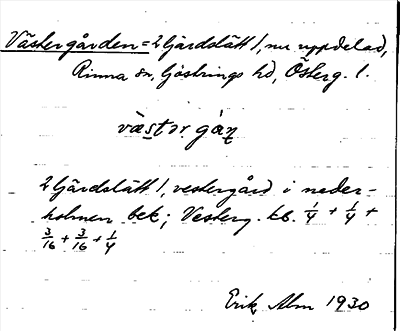 Västergården = Ljärdslätt 1, nu uppdelad,
Rinna sn, Göstrings hd, Österg. l.
västər gåṉ
Ljärdslätt 1, vestergård i neder-
holmen bek; Vesterg. kb. 1/4 + 1/4 +
3/16 + 3/16 + 1/4
Erik Alm 1930